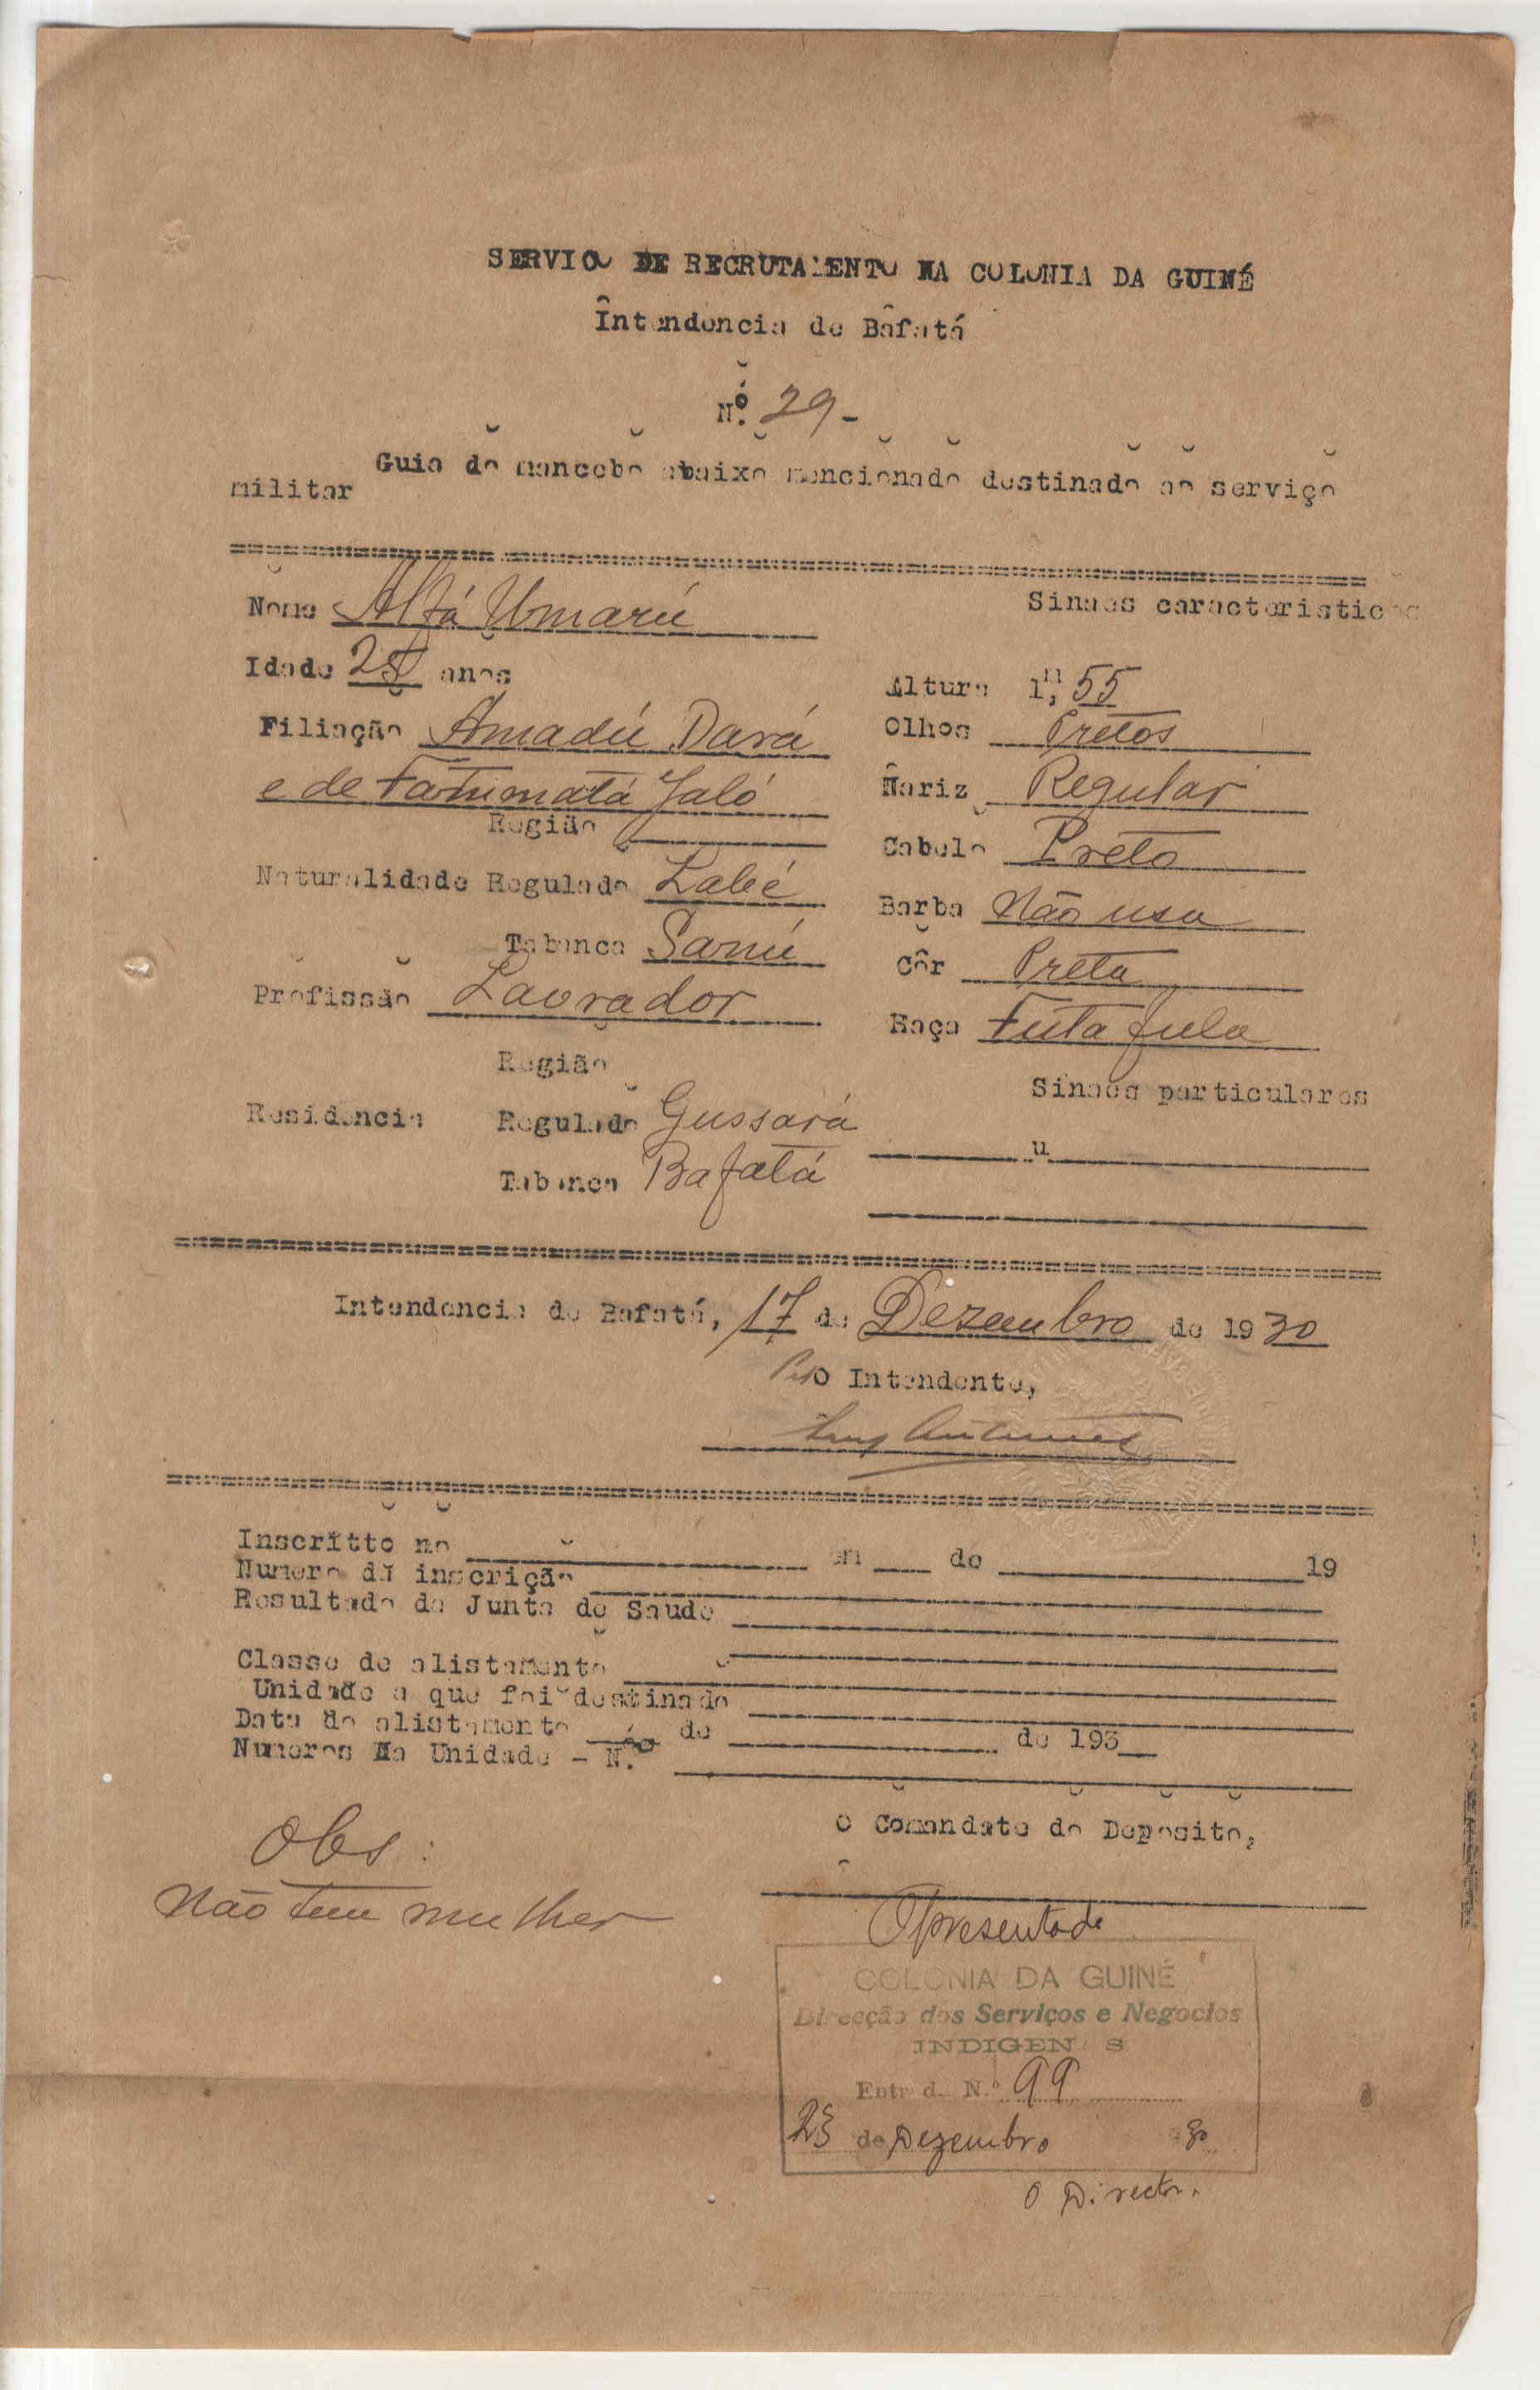 SERVIÇO DE RECRUTAMENTO NA COLONIA DA GUINÉ
Intendencia de Bafatá
N.º 29-
Guia do mancebo abaixo mencionado destinado ao serviço
militar
Nome Alfá Umarú
Sinaes caracteristicos
Idade anos
Altura 1m,55
Filiação Amadú Dará
Olhos Pretos
e de Fatumatá Jaló
Nariz Regular
Região
Cabelo Preto
Naturalidade Regulado Labé
Barba Não usa
Tabanca Samú
Côr Preta
Profissão Lavrador
Raça Futa fula
Região
Sinaes particulares
Residencia Regulado Gussará
u
Tabanca Bafatá
Intendencia de Bafatá, 17 de Dezembro de 1930
Pelo Intendente,
Antunes
Inscritto no em de 19
Numero da inscrição
Resultado da Junta de Saude
Classe de alistamento
Unidade a que foi destinado
Data do alistamento de de 193
Numeros Na Unidade - N.º
O Comandate do Deposito,
Obs:
Não tem mulher
Apresentado
COLONIA DA GUINÉ
Direcção dos Serviços e Negocios
INDIGENAS
Entrada N.º 99
23 de Dezembro 30
O Director.